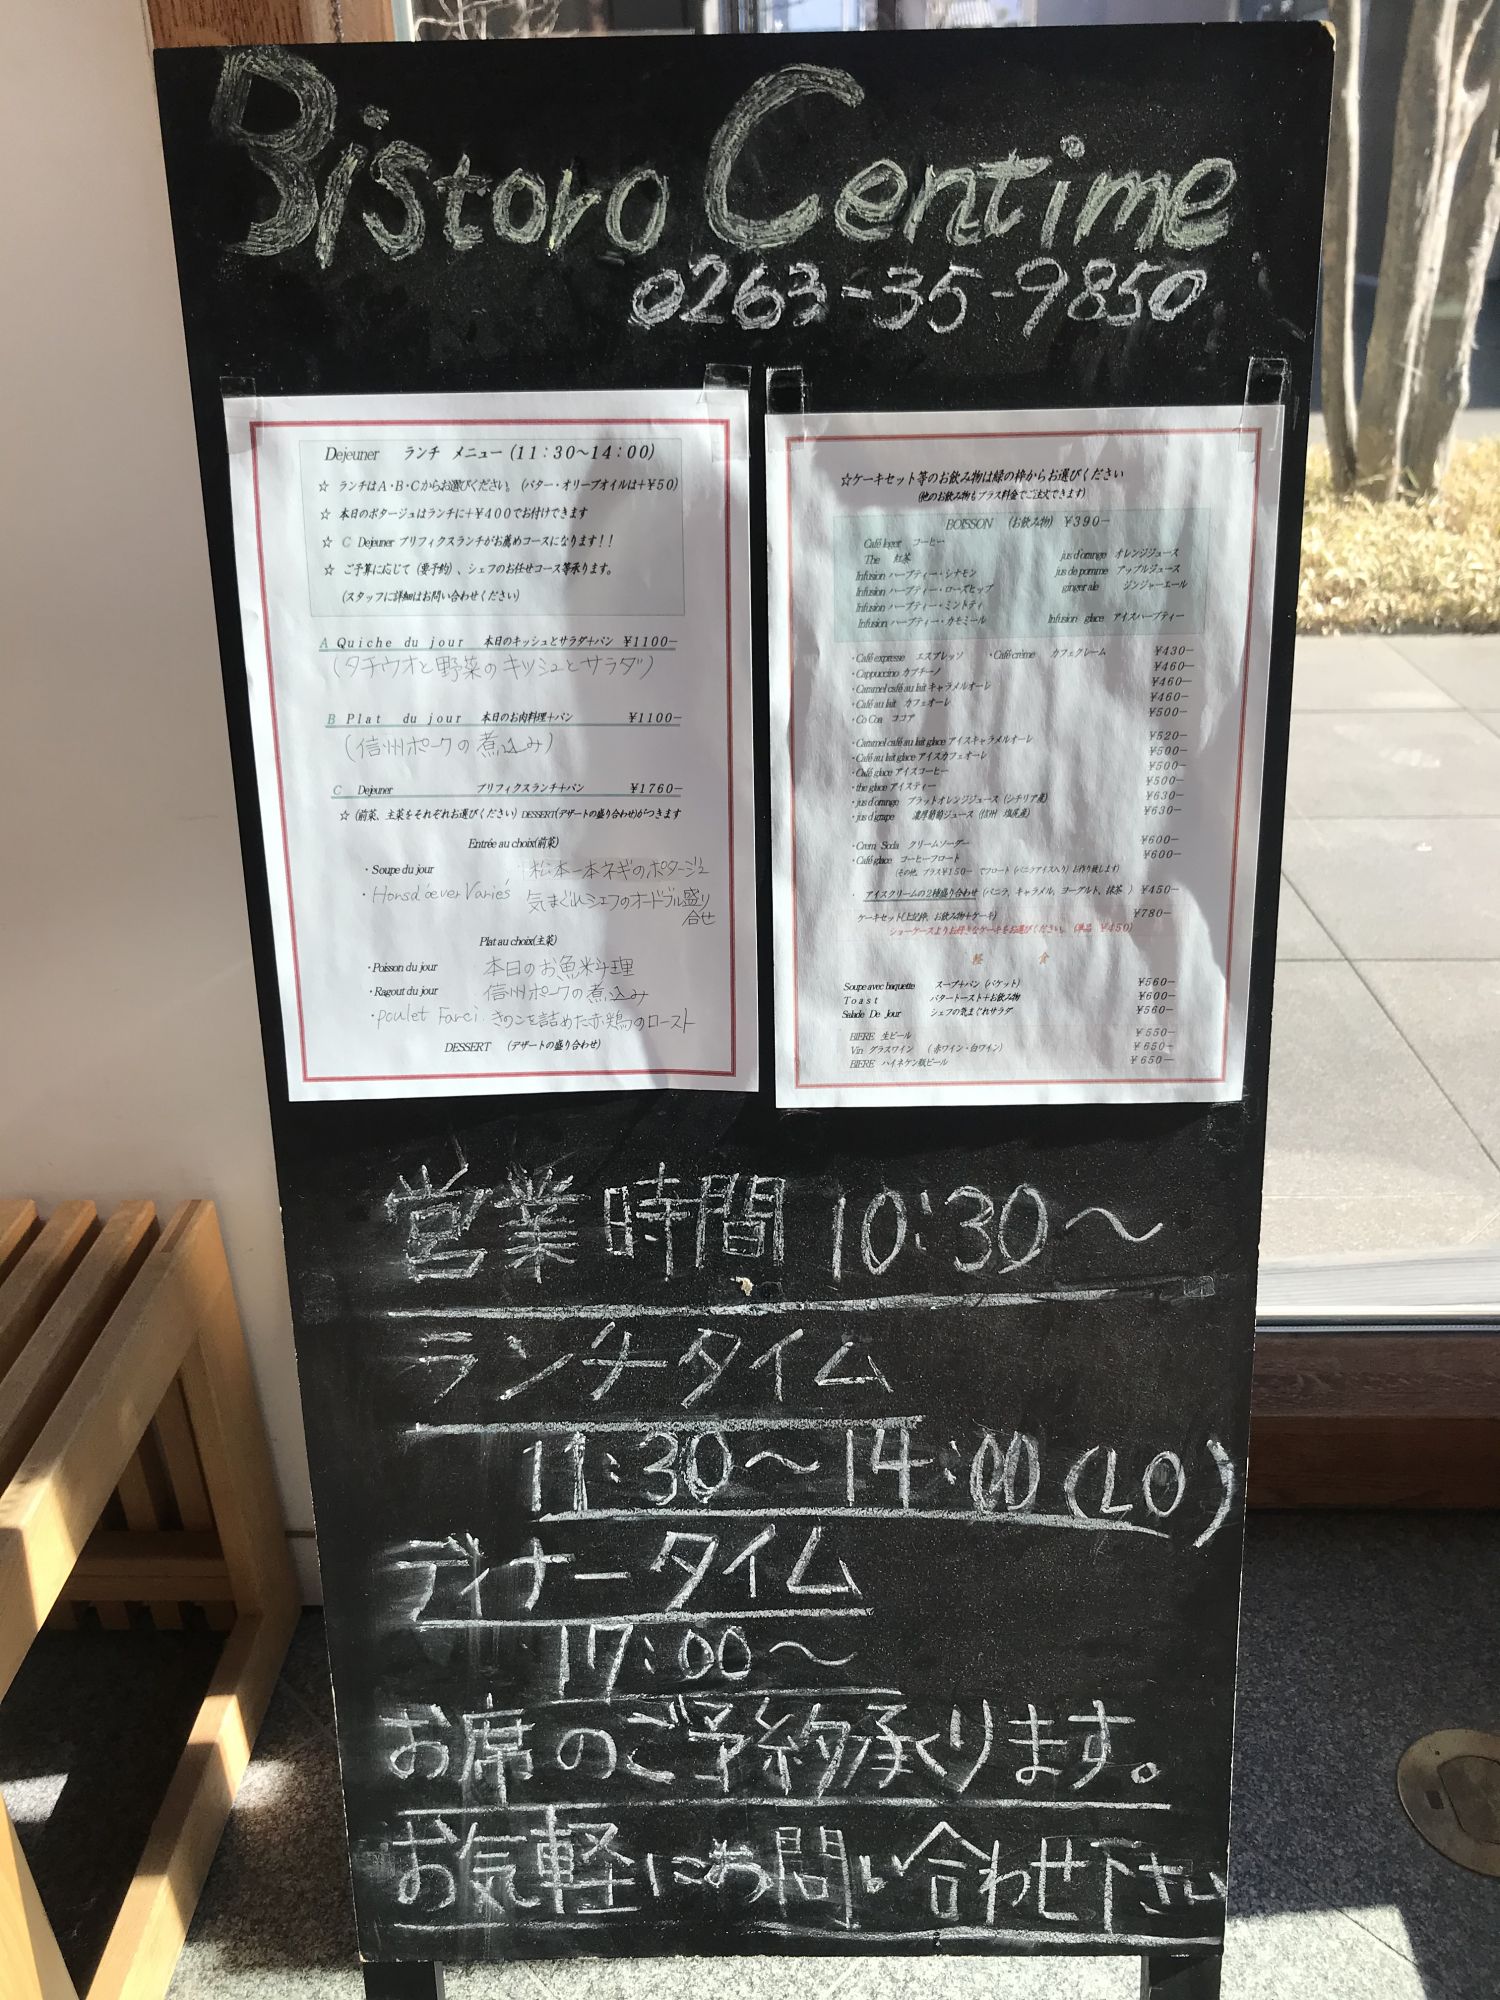 Bistoro Centime
0263-35-9850
Dejeuner ランチ メニュー (11:30～14:00)
☆ ランチはA・B・Cからお選びください。(バター・オリーブオイルは+¥50)
☆ 本日のポタージュはランチに+¥400でお付けできます
☆ C Dejeuner プリフィクスランチがお薦めコースになります!!
☆ ご予算に応じて(要予約)、シェフのお任せコース等承ります。
(スタッフに詳細はお問い合わせください)
A Quiche du jour 本日のキッシュとサラダ+パン ¥1100-
(タチウオと野菜のキッシュとサラダ)
B Plat du jour 本日のお肉料理+パン ¥1100-
(信州ポークの煮込み)
C Dejeuner プリフィクスランチ+パン ¥1760-
☆ (前菜、主菜をそれぞれお選びください) DESSERT(デザートの盛り合わせ)がつきます
Entrée au choix(前菜)
・Soupe du jour 松本一本ネギのポタージュ
・Honsd'óever Variés 気まぐれシェフのオードブル盛り
合せ
Plat au choix(主菜)
・Poisson du jour 本日のお魚料理
・Ragout du jour 信州ポークの煮込み
・poulet Farci. きのこを詰めた赤鶏のロースト
DESSERT (デザートの盛り合わせ)
☆ケーキセット等のお飲み物は緑の枠からお選びください
(他のお飲み物もプラス料金でご注文できます)
BOISSON (お飲み物) ¥390-
Café leger コーヒー
The 紅茶 jus d'orange オレンジジュース
Infusion ハーブティー・シナモン jus de pomme アップルジュース
Infusion ハーブティー・ローズヒップ ginger ale ジンジャーエール
Infusion ハーブティー・ミントティ
Infusion ハーブティー・カモミール Infusion glace アイスハーブティー
・Café expresse エスプレッソ ・Café crème カフェクレーム ¥430-
・Cappuccino カプチーノ ¥460-
・Caramel café au lait キャラメルオーレ ¥460-
・Café au lait カフェオーレ ¥460-
・Co Coa ココア ¥500-
・Caramel café au lait glace アイスキャラメルオーレ ¥520-
・Café au lait glace アイスカフェオーレ ¥500-
・Café glace アイスコーヒー ¥500-
・the glace アイスティー ¥500-
・jus d'orange ブラッドオレンジジュース (シチリア産) ¥630-
・jus d'grape 濃厚葡萄ジュース (信州 塩尻産) ¥630-
・Crem Soda クリームソーダー ¥600-
・Café glace コーヒーフロート ¥600-
(その他、プラス¥150- でフロート (バニラアイス入り) お作り致します)
・アイスクリームの2種盛り合わせ (バニラ、キャラメル、ヨーグルト、抹茶 ) ¥450-
ケーキセット(上記枠、お飲み物+ケーキ) ¥780-
ショーケースよりお好きなケーキをお選びください。 (単品 ¥450)
軽 食
Soupe avec baguette スープ+パン (バケット) ¥560-
Toast バタートースト+お飲み物 ¥600-
Salade De Jour シェフの気まぐれサラダ ¥560-
BIERE 生ビール ¥550-
Vin グラスワイン (赤ワイン・白ワイン) ¥650-
BIERE ハイネケン瓶ビール ¥650-
営業時間 10:30～
ランチタイム
11:30～14:00(LO)
ディナータイム
17:00～
お席のご予約承ります。
お気軽にお問い合わせ下さい